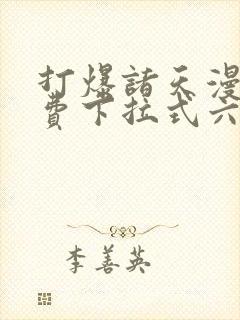 打爆諸天漫
費下拉式六
李善英